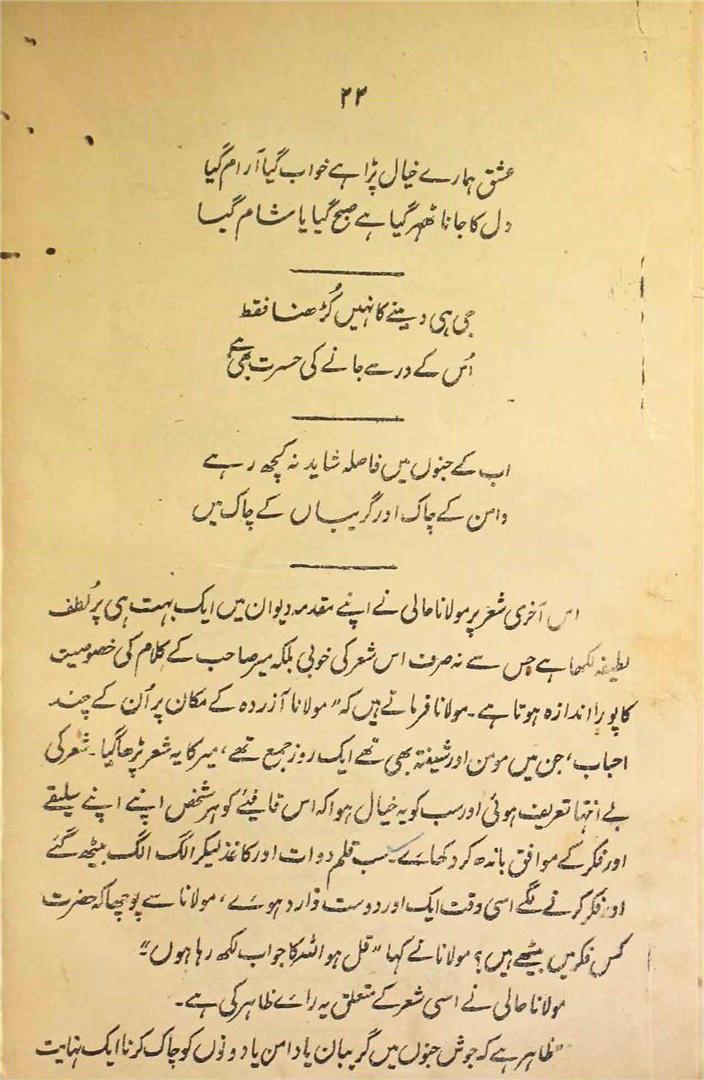 ۲۳
عشق ہمارے خیال پڑا ہے خواب گیا آرام گیا
دل کا جانا ٹھہر گیا ہے صبح گیا یا شام گیا
جی ہی دینے کا نہیں کُڑھنا فقط
اُس کے در سے جانے کی حسرت بھی ہے
اب کے جنوں میں فاصلہ شاید نہ کچھ رہے
دامن کے چاک اور گریباں کے چاک میں
اس آخری شعر پر مولانا حالی نے اپنے مقدمہ دیوان میں ایک بہت ہی پُر لُطف
لطیفہ لکھا ہے جس سے نہ صرف اس شعر کی خوبی بلکہ میر صاحب کے کلام کی خصوصیت
کا پورا اندازہ ہوتا ہے۔ مولانا فرماتے ہیں کہ "مولانا آزردہ کے مکان پر اُن کے چند
احباب، جن میں مومن اور شیفتہ بھی تھے ایک روز جمع تھے، میر کا یہ شعر پڑھا گیا۔ شعر کی
بے انتہا تعریف ہوئی اور سب کو یہ خیال ہوا کہ اس قافیئے کو ہر شخص اپنے اپنے سلیقے
اور فکر کے موافق باندھ کر دکھائے۔ سب قلم دوات اور کاغذ لیکر الگ الگ بیٹھ گئے
اور فکر کرنے لگے اسی وقت ایک اور دوست وارد ہوئے، مولانا سے پوچھا کہ حضرت
کس فکر میں بیٹھے ہیں؟ مولانا نے کہا "قل ہو اللہ کا جواب لکھ رہا ہوں"۔
مولانا حالی نے اسی شعر کے متعلق یہ رائے ظاہر کی ہے۔
"ظاہر ہے کہ جوش جنوں میں گریبان یا دامن یا دونوں کو چاک کرنا ایک نہایت